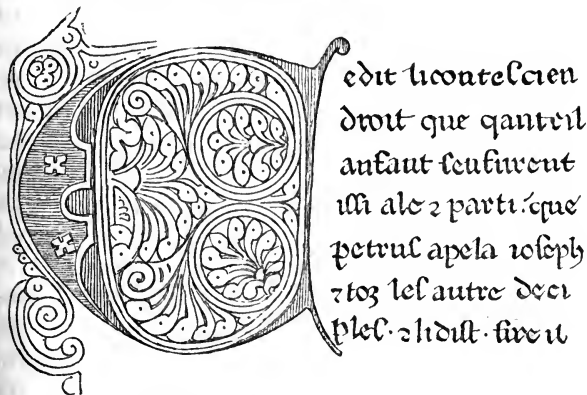 Cedit liconteſcien
droit que qantcil
anfant ſenfurent
iſſi ale ⁊ parti. que
petruſ apela ioſeph
⁊ toz leſ autre deci
pleſ · ⁊ lidiſt · ſire il